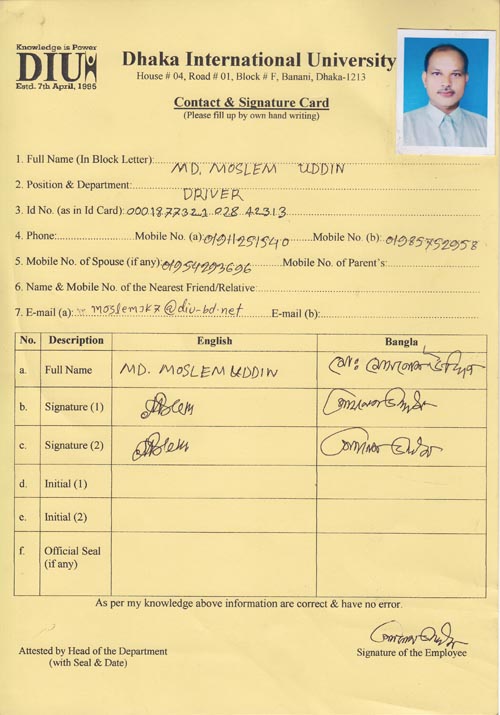 Knowledge is Power
DIU
Estd. 7th April, 1995
Dhaka International University
House # 04, Road # 01, Block # F, Banani, Dhaka-1213
Contact & Signature Card
(Please fill up by own hand writing)
1. Full Name (In Block Letter): MD. MOSLEM UDDIN
2. Position & Department: DRIVER
3. Id No. (as in Id Card): 0001877321 028 42313
4. Phone: Mobile No. (a): 01911251540 Mobile No. (b): 01985752958
5. Mobile No. of Spouse (if any): 01954293696 Mobile No. of Parent's:
6. Name & Mobile No. of the Nearest Friend/Relative:
7. E-mail (a): moslemjk7@diu-bd.net E-mail (b):
No. Description English Bangla
a. Full Name MD. MOSLEM UDDIN মোঃ মোসলেম উদ্দিন
b. Signature (1) Moslem
c. Signature (2) Moslem
d. Initial (1)
e. Initial (2)
f. Official Seal
(if any)
As per my knowledge above information are correct & have no error.
Attested by Head of the Department
(with Seal & Date)
Signature of the Employee